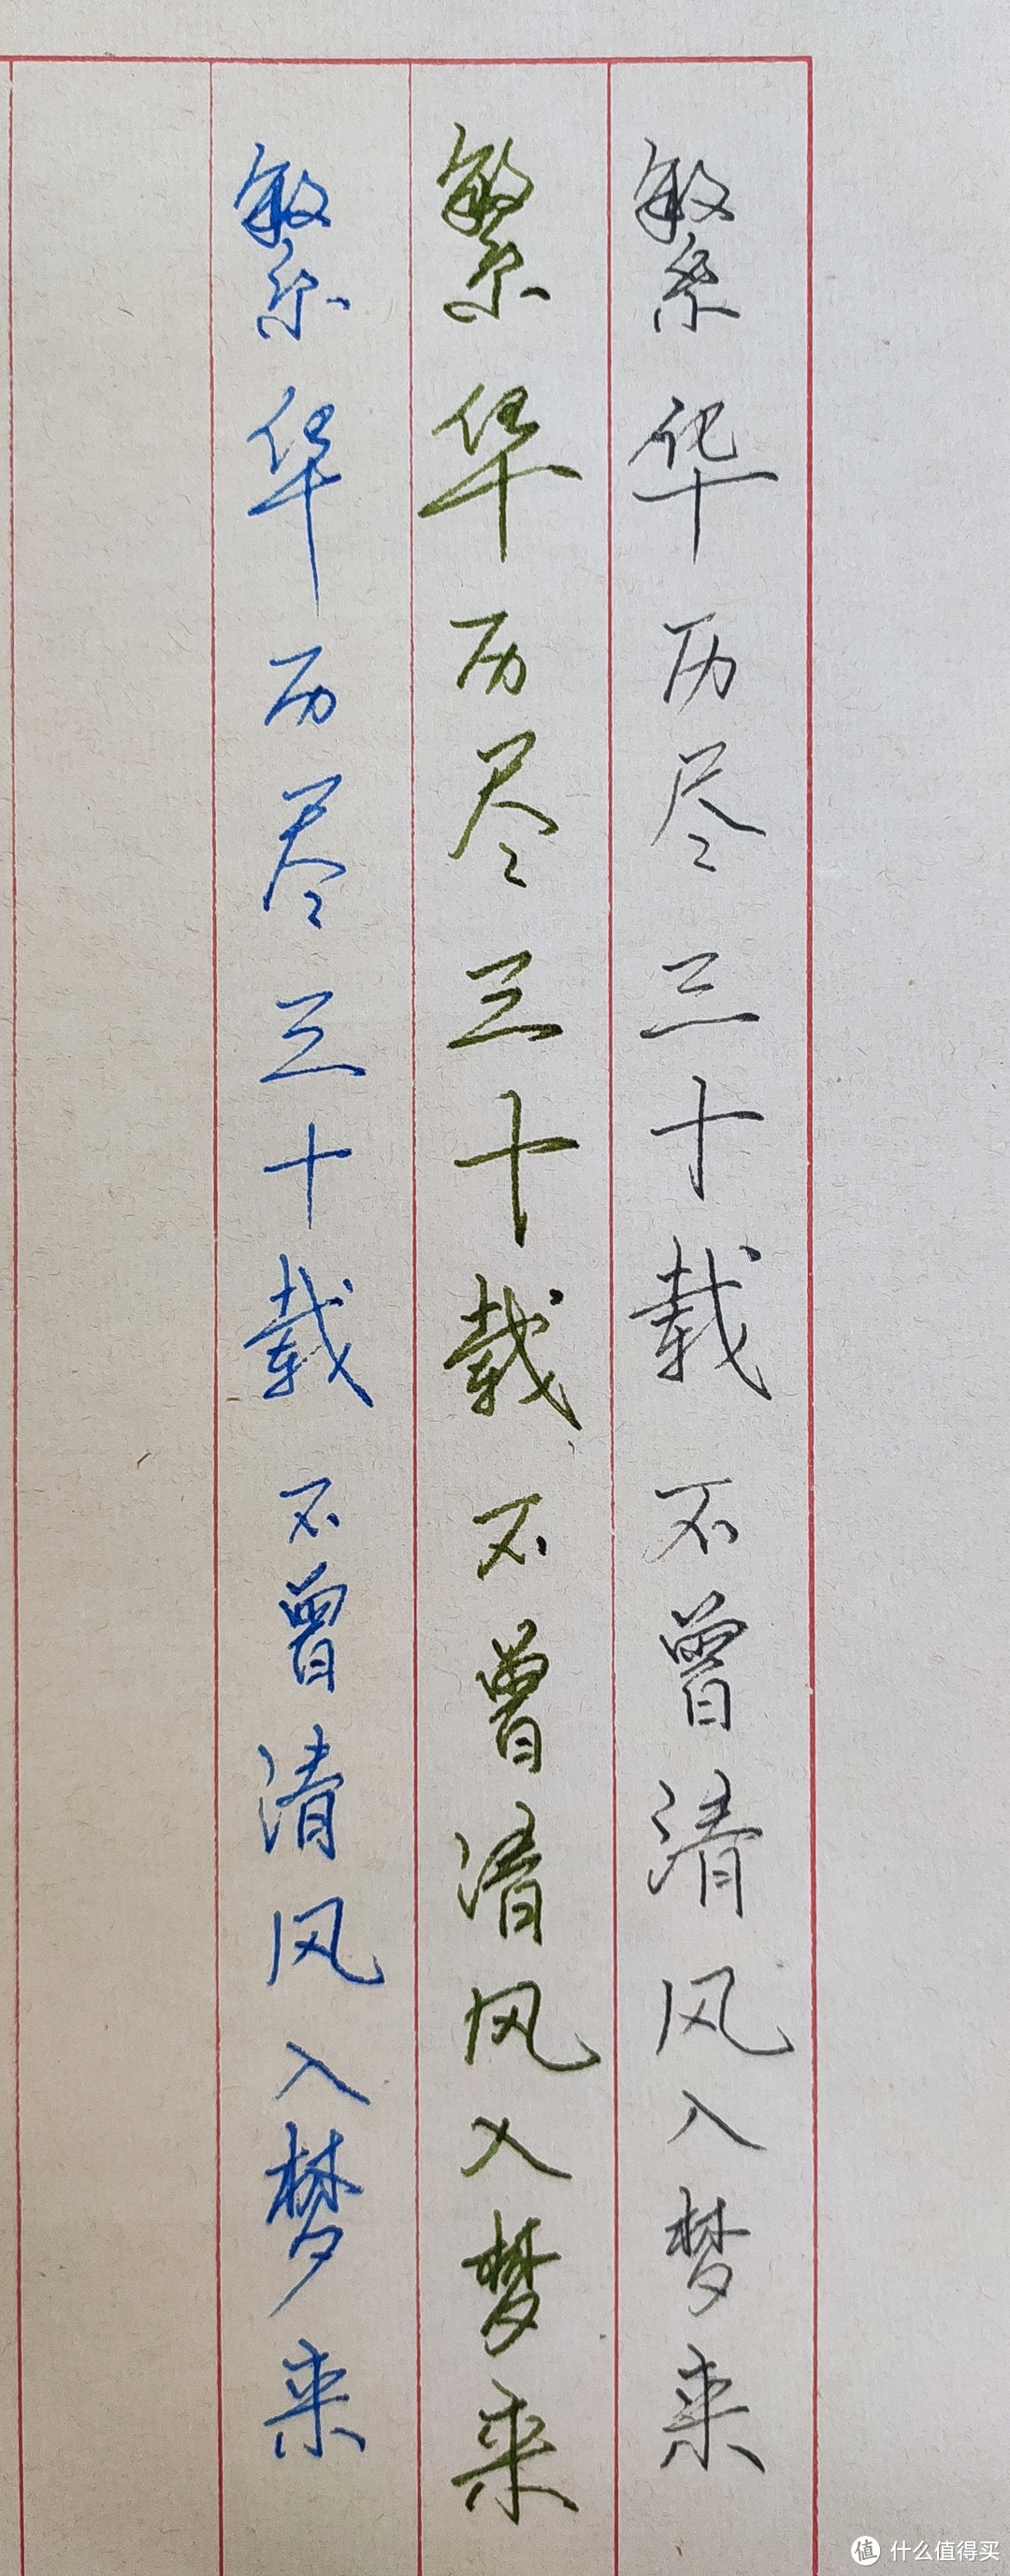 繁华历尽三十载不曾清风入梦来
繁华历尽三十载不曾清风入梦来
繁华历尽三十载不曾清风入梦来
值 什么值得买